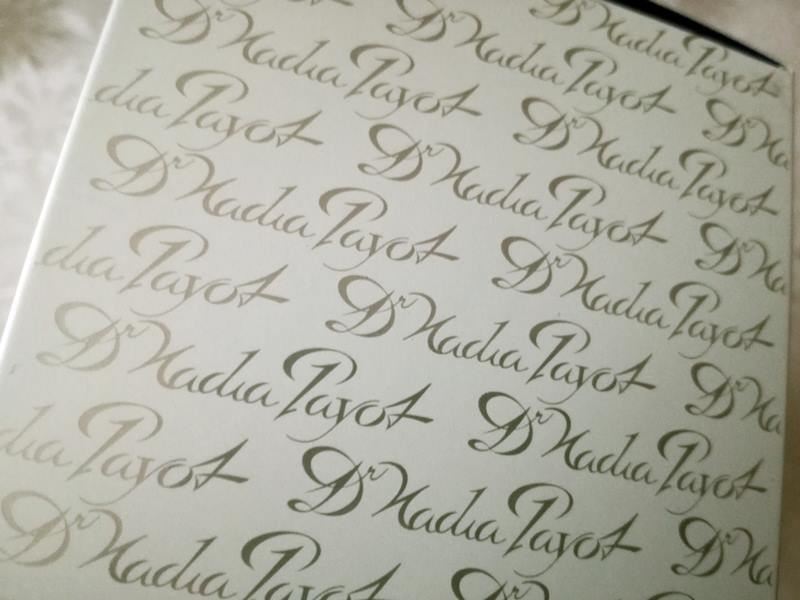 Dr Nadia Payot Dr Nadia Payot Dr Nadia Payot
dia Payot Dr Nadia Payot Dr Na
Dr Nadia Payot Dr Nadia Payot
dia Payot Dr Nadia Payot Dr Na
Dr Nadia Payot Dr Nadia Payot
dia Payot Dr Nadia Payot Dr Na
Dr Nadia Payot